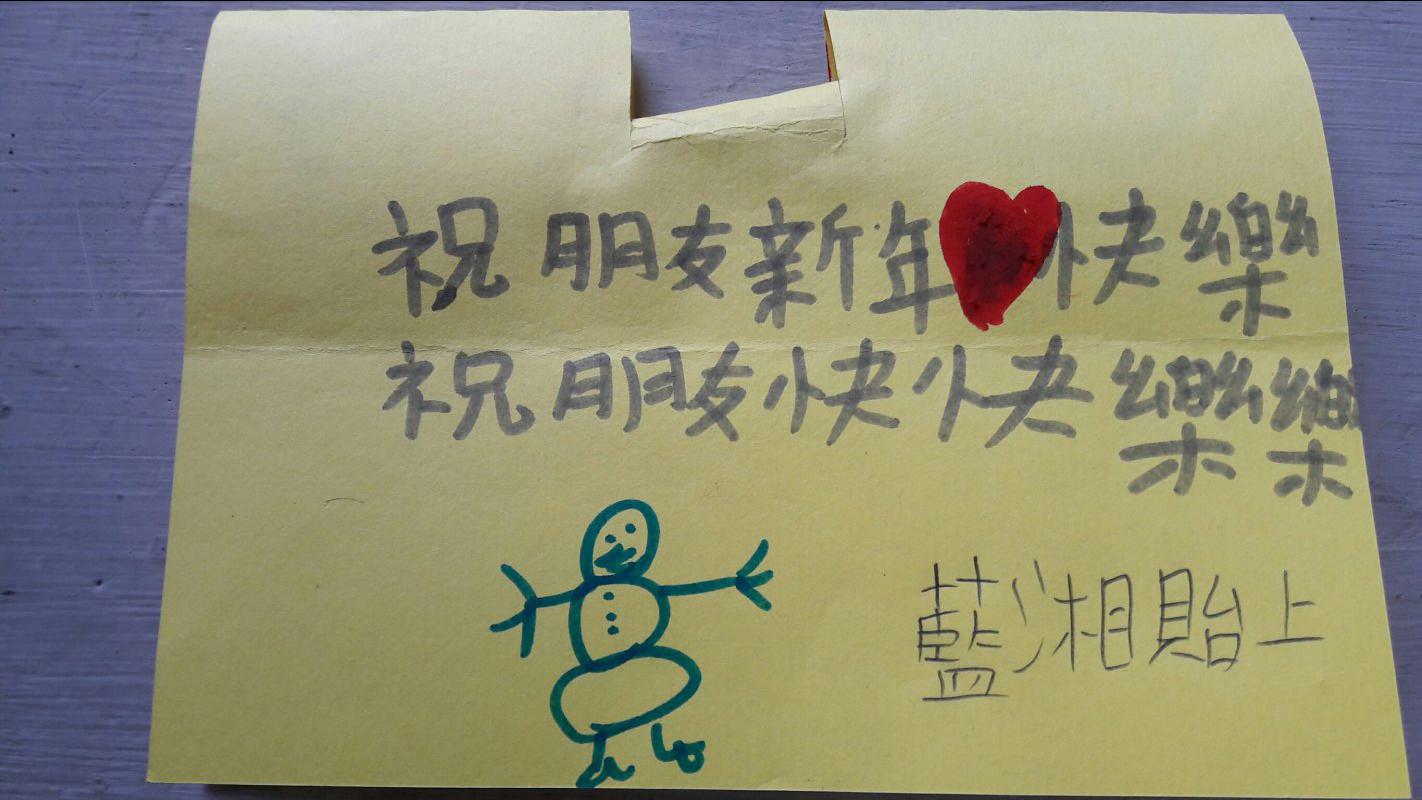 祝朋友新年快樂
祝朋友快快樂樂
藍湘貽上